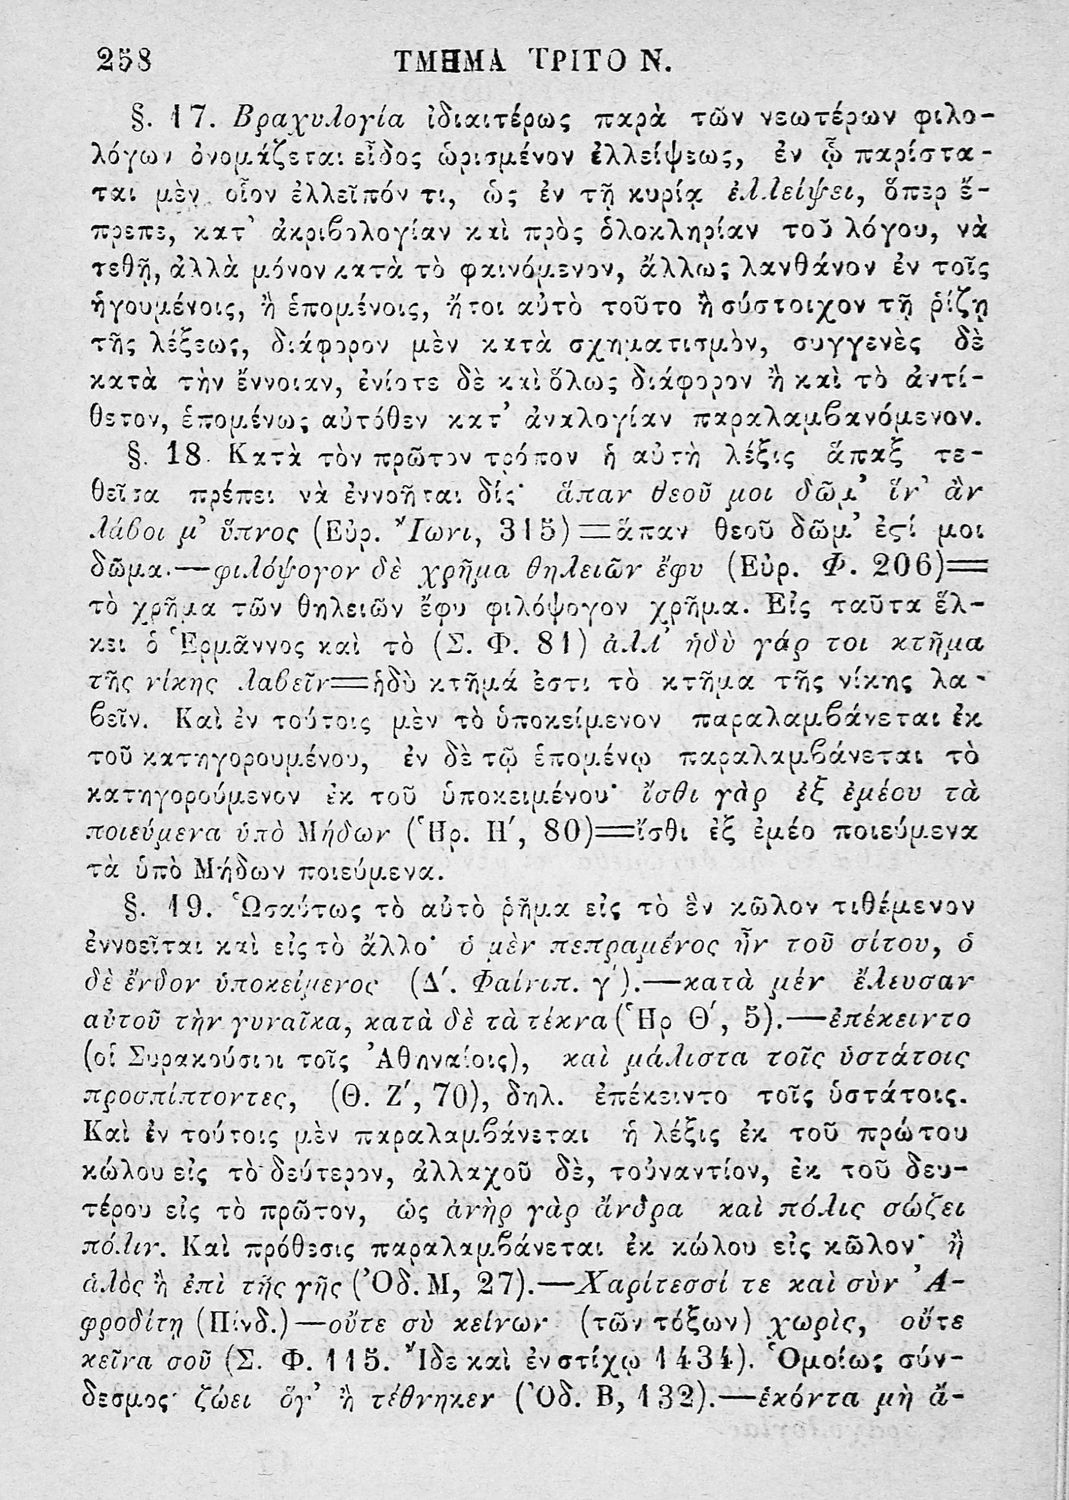 258 ΤΜΗΜΑ ΤΡΙΤΟΝ.
§. 17. Βραχυλογία ἰδιαιτέρως παρὰ τῶν νεωτέρων φιλο-
λόγων ὀνομάζεται εἶδος ὡρισμένον ἐλλείψεως, ἐν ᾧ παρίστα-
ται μὲν οἷον ἐλλεῖπόν τι, ὡς ἐν τῇ κυρίᾳ ἐλλείψει, ὅπερ ἔ-
πρεπε, κατ' ἀκριβολογίαν καὶ πρὸς ὁλοκληρίαν τοῦ λόγου, νὰ
τεθῇ, ἀλλὰ μόνον κατὰ τὸ φαινόμενον, ἄλλως λανθάνον ἐν τοῖς
ἡγουμένοις, ἢ ἑπομένοις, ἤτοι αὐτὸ τοῦτο ἢ σύστοιχον τῇ ῥίζῃ
τῆς λέξεως, διάφορον μὲν κατὰ σχηματισμὸν, συγγενὲς δὲ
κατὰ τὴν ἔννοιαν, ἐνίοτε δὲ καὶ ὅλως διάφορον ἢ καὶ τὸ ἀντί-
θετον, ἑπομένως αὐτόθεν κατ' ἀναλογίαν παραλαμβανόμενον.
§. 18. Κατὰ τὸν πρῶτον τρόπον ἡ αὐτὴ λέξις ἅπαξ τε-
θεῖσα πρέπει νὰ ἐννοῆται δίς· ἅπαν θεοῦ μοι δῶμ' ἵν' ἂν
λάβοι μ' ὕπνος (Εὐρ. Ἴωνι, 315)=ἅπαν θεοῦ δῶμ' ἐστί μοι
δῶμα.—φιλόψογον δὲ χρῆμα θηλειῶν ἔφυ (Εὐρ. Φ. 206)=
τὸ χρῆμα τῶν θηλειῶν ἔφυ φιλόψογον χρῆμα. Εἰς ταῦτα ἕλ-
κει ὁ Ἑρμᾶννος καὶ τὸ (Σ. Φ. 81) ἀλλ' ἡδὺ γάρ τοι κτῆμα
τῆς νίκης λαβεῖν=ἡδὺ κτῆμά ἐστι τὸ κτῆμα τῆς νίκης λα-
βεῖν. Καὶ ἐν τούτοις μὲν τὸ ὑποκείμενον παραλαμβάνεται ἐκ
τοῦ κατηγορουμένου, ἐν δὲ τῷ ἑπομένῳ παραλαμβάνεται τὸ
κατηγορούμενον ἐκ τοῦ ὑποκειμένου· ἴσθι γὰρ ἐξ ἐμέου τὰ
ποιεύμενα ὑπὸ Μήδων (Ἡρ. Η', 80)=ἴσθι ἐξ ἐμέο ποιεύμενα
τὰ ὑπὸ Μήδων ποιεύμενα.
§. 19. Ὡσαύτως τὸ αὐτὸ ῥῆμα εἰς τὸ ἓν κῶλον τιθέμενον
ἐννοεῖται καὶ εἰς τὸ ἄλλο· ὁ μὲν πεπραμένος ἦν τοῦ σίτου, ὁ
δὲ ἔνδον ὑποκείμενος (Δ'. Φαίνιπ. γ').—κατὰ μέν ἔλευσαν
αὐτοῦ τὴν γυναῖκα, κατὰ δὲ τὰ τέκνα (Ἡρ Θ', 5).—ἐπέκειντο
(οἱ Συρακούσιοι τοῖς Ἀθηναίοις), καὶ μάλιστα τοῖς ὑστάτοις
προσπίπτοντες, (Θ. Ζ', 70), δηλ. ἐπέκειντο τοῖς ὑστάτοις.
Καὶ ἐν τούτοις μὲν παραλαμβάνεται ἡ λέξις ἐκ τοῦ πρώτου
κώλου εἰς τὸ δεύτερον, ἀλλαχοῦ δὲ, τοὐναντίον, ἐκ τοῦ δευ-
τέρου εἰς τὸ πρῶτον, ὡς ἀνὴρ γὰρ ἄνδρα καὶ πόλις σώζει
πόλιν. Καὶ πρόθεσις παραλαμβάνεται ἐκ κώλου εἰς κῶλον· ἢ
ἁλὸς ἢ ἐπὶ τῆς γῆς (Ὀδ. Μ, 27).—Χαρίτεσσί τε καὶ σὺν Ἀ-
φροδίτῃ (Πινδ.)—οὔτε σὺ κείνων (τῶν τόξων) χωρὶς, οὔτε
κεῖνα σοῦ (Σ. Φ. 115. Ἴδε καὶ ἐν στίχῳ 1434). Ὁμοίως σύν-
δεσμος· ζώει ὅγ' ἢ τέθνηκεν (Ὀδ. Β, 132).—ἑκόντα μὴ ἄ-